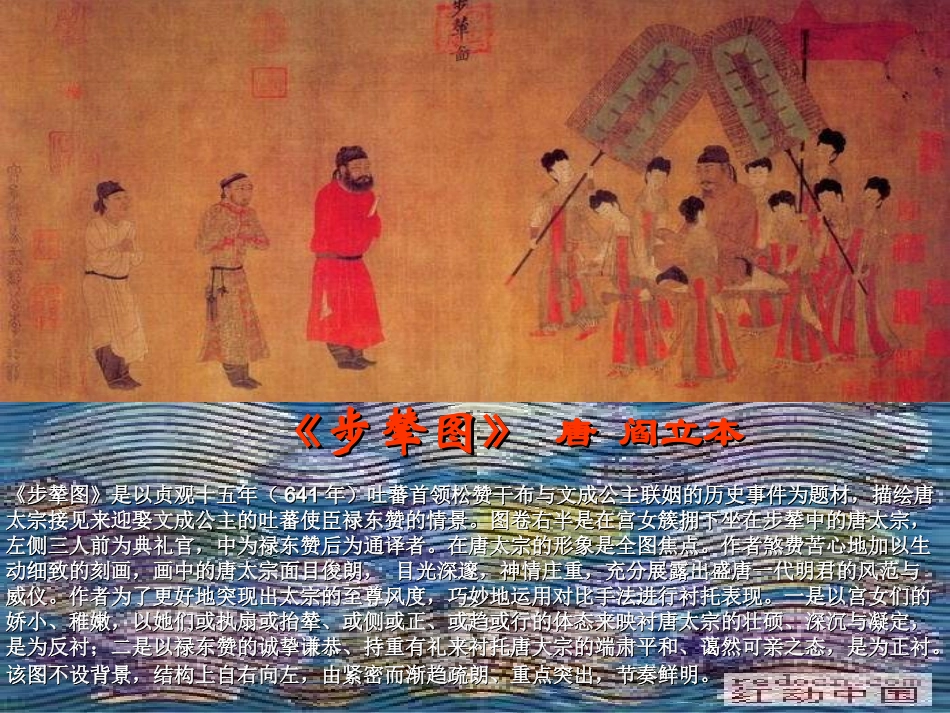 步辇图
《步辇图》 唐 阎立本
《步辇图》是以贞观十五年（641年）吐蕃首领松赞干布与文成公主联姻的历史事件为题材，描绘唐
太宗接见来迎娶文成公主的吐蕃使臣禄东赞的情景。图卷右半是在宫女簇拥下坐在步辇中的唐太宗，
左侧三人前为典礼官，中为禄东赞后为通译者。在唐太宗的形象是全图焦点。作者煞费苦心地加以生
动细致的刻画，画中的唐太宗面目俊朗， 目光深邃，神情庄重，充分展露出盛唐一代明君的风范与
威仪。作者为了更好地突现出太宗的至尊风度，巧妙地运用对比手法进行衬托表现。一是以宫女们的
娇小、稚嫩，以她们或执扇或抬辇、或侧或正、或趋或行的体态来映衬唐太宗的壮硕、深沉与凝定，
是为反衬；二是以禄东赞的诚挚谦恭、持重有礼来衬托唐太宗的端肃平和、蔼然可亲之态，是为正衬。
该图不设背景，结构上自右向左，由紧密而渐趋疏朗、重点突出，节奏鲜明。
redocn.com
红动中国